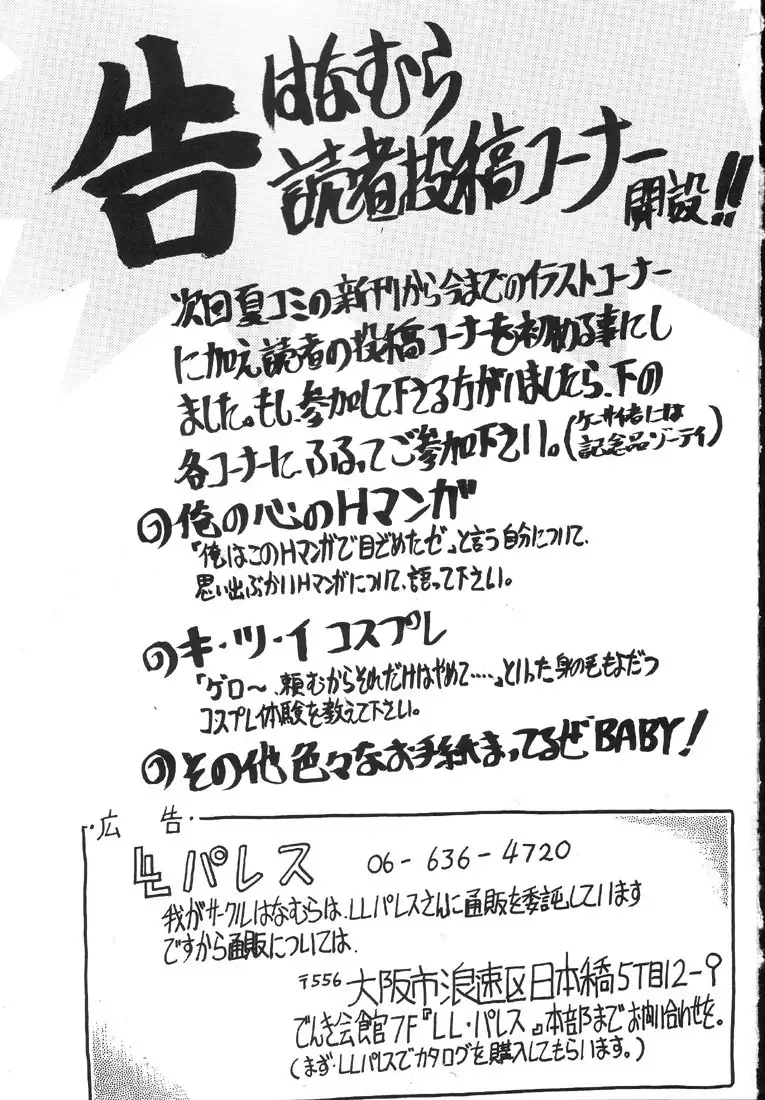 告
はなむら
読者投稿コーナー
開設!!
次回夏コミの新刊から今までのイラストコーナー
に加え読者の投稿コーナーを初める事にし
ました。もし、参加して下さる方がいましたら、下の
各コーナーに、ふるってご参加下さい。(ケーサイ者には
記念品ゾーテイ)
の俺の心のHマンガ
「俺はこのHマンガで目ざめたゼ」と言う自分について、
思い出ぶかいHマンガについて、語って下さい。
のキ・ツ・イコスプレ
「ゲロ〜、頼むからそれだけはやめて……」といった身の毛もよだつ
コスプレ体験を教えて下さい。
のその他色々なお手紙まってるぜBABY!
・広告・
LLパレス 06-636-4720
我がサークルはなむらは、LLパレスさんに通販を委託しています
ですから通販については、
〒556 大阪市浪速区日本橋5丁目12-9
でんき会館7F『LL・パレス』本部まで お問い合わせを。
(まず・LLパレスでカタログを購入してもらいます。)